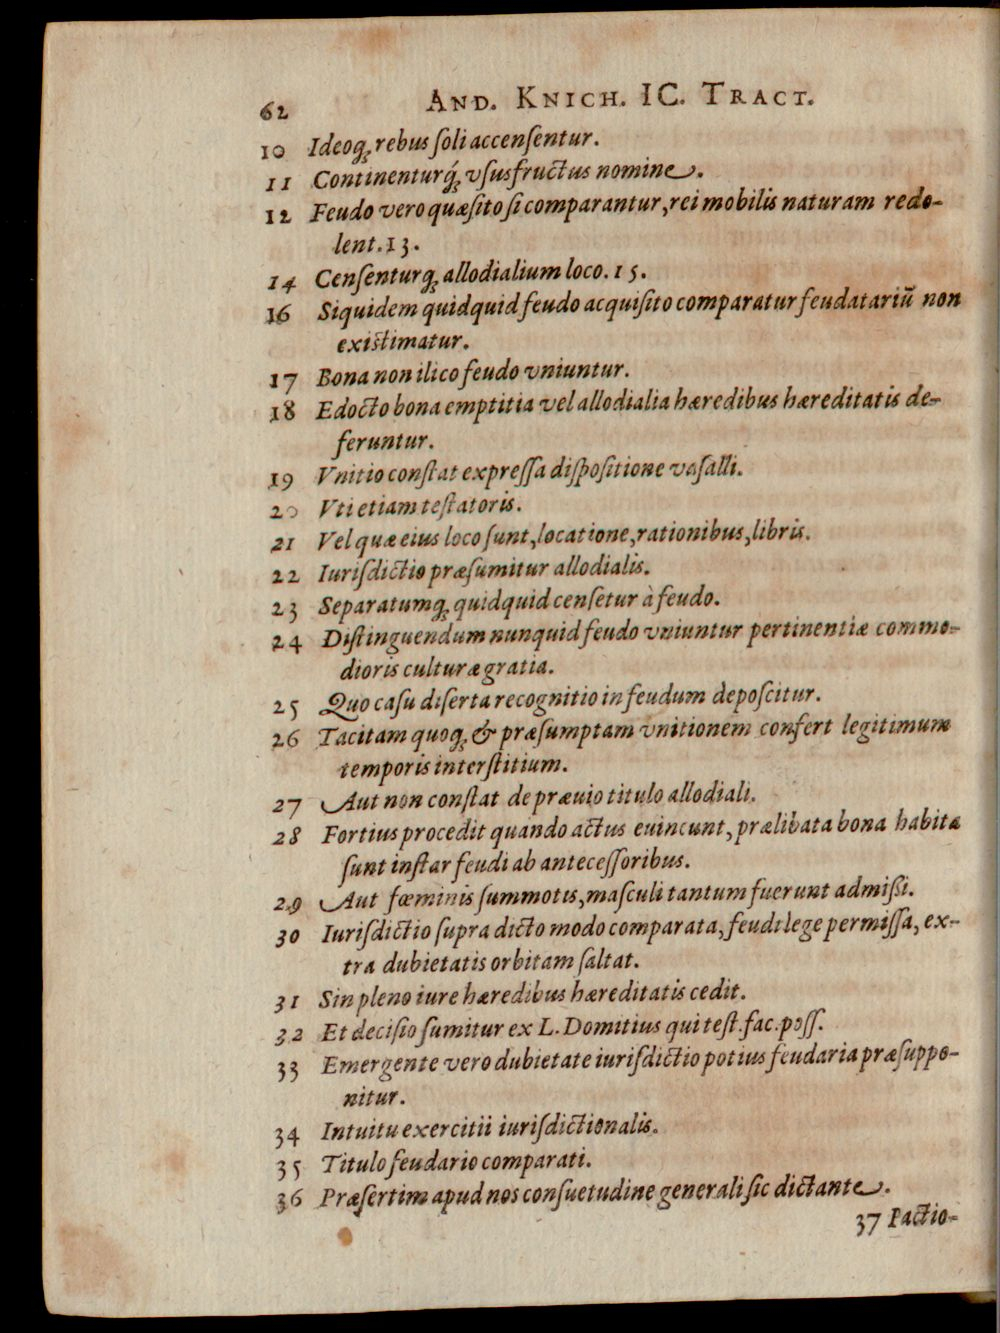 62 AND. KNICH. IC. TRACT.
10 Ideoq́; rebus ſoli accenſentur.
11 Continenturq́; vſusfructus nomine.
12 Feudo vero quæſito ſi comparantur, rei mobilis naturam redo-
lent. 13.
14 Cenſenturq; allodialium loco. 15.
16 Siquidem quidquid feudo acquiſito comparatur feudatariū non
existimatur.
17 Bona non ilico feudo vniuntur.
18 Edocto bona emptitia vel allodialia hæredibus hæreditatis de-
feruntur.
19 Vnitio conſtat expreſſa diſpoſitione vaſalli.
20 Vti etiam teſtatoris.
21 Vel quæ eius loco ſunt, locatione, rationibus, libris.
22 Iuriſdictio præſumitur allodialis.
23 Separatumq; quidquid cenſetur à feudo.
24 Diſtinguendum nunquid feudo vniuntur pertinentiæ commo-
dioris culturæ gratia.
25 Quo caſu diſerta recognitio in feudum depoſcitur.
26 Tacitam quoq; & præſumptam vnitionem confert legitimum
temporis interſtitium.
27 Aut non conſtat de præuio titulo allodiali.
28 Fortius procedit quando actus euincunt, prælibata bona habita
ſunt inſtar feudi ab anteceſſoribus.
29 Aut fœminis ſummotis, maſculi tantum fuerunt admiſſi.
30 Iuriſdictio ſupra dicto modo comparata, feudi lege permiſſa, ex-
tra dubietatis orbitam ſaltat.
31 Sin pleno iure hæredibus hæreditatis cedit.
32 Et deciſio ſumitur ex L. Domitius qui teſt. fac. poſſ.
33 Emergente vero dubietate iuriſdictio potius feudaria præſuppo-
nitur.
34 Intuitu exercitii iuriſdictionalis.
35 Titulo feudario comparati.
36 Præſertim apud nos conſuetudine generali ſic dictante.
37 Pactio-